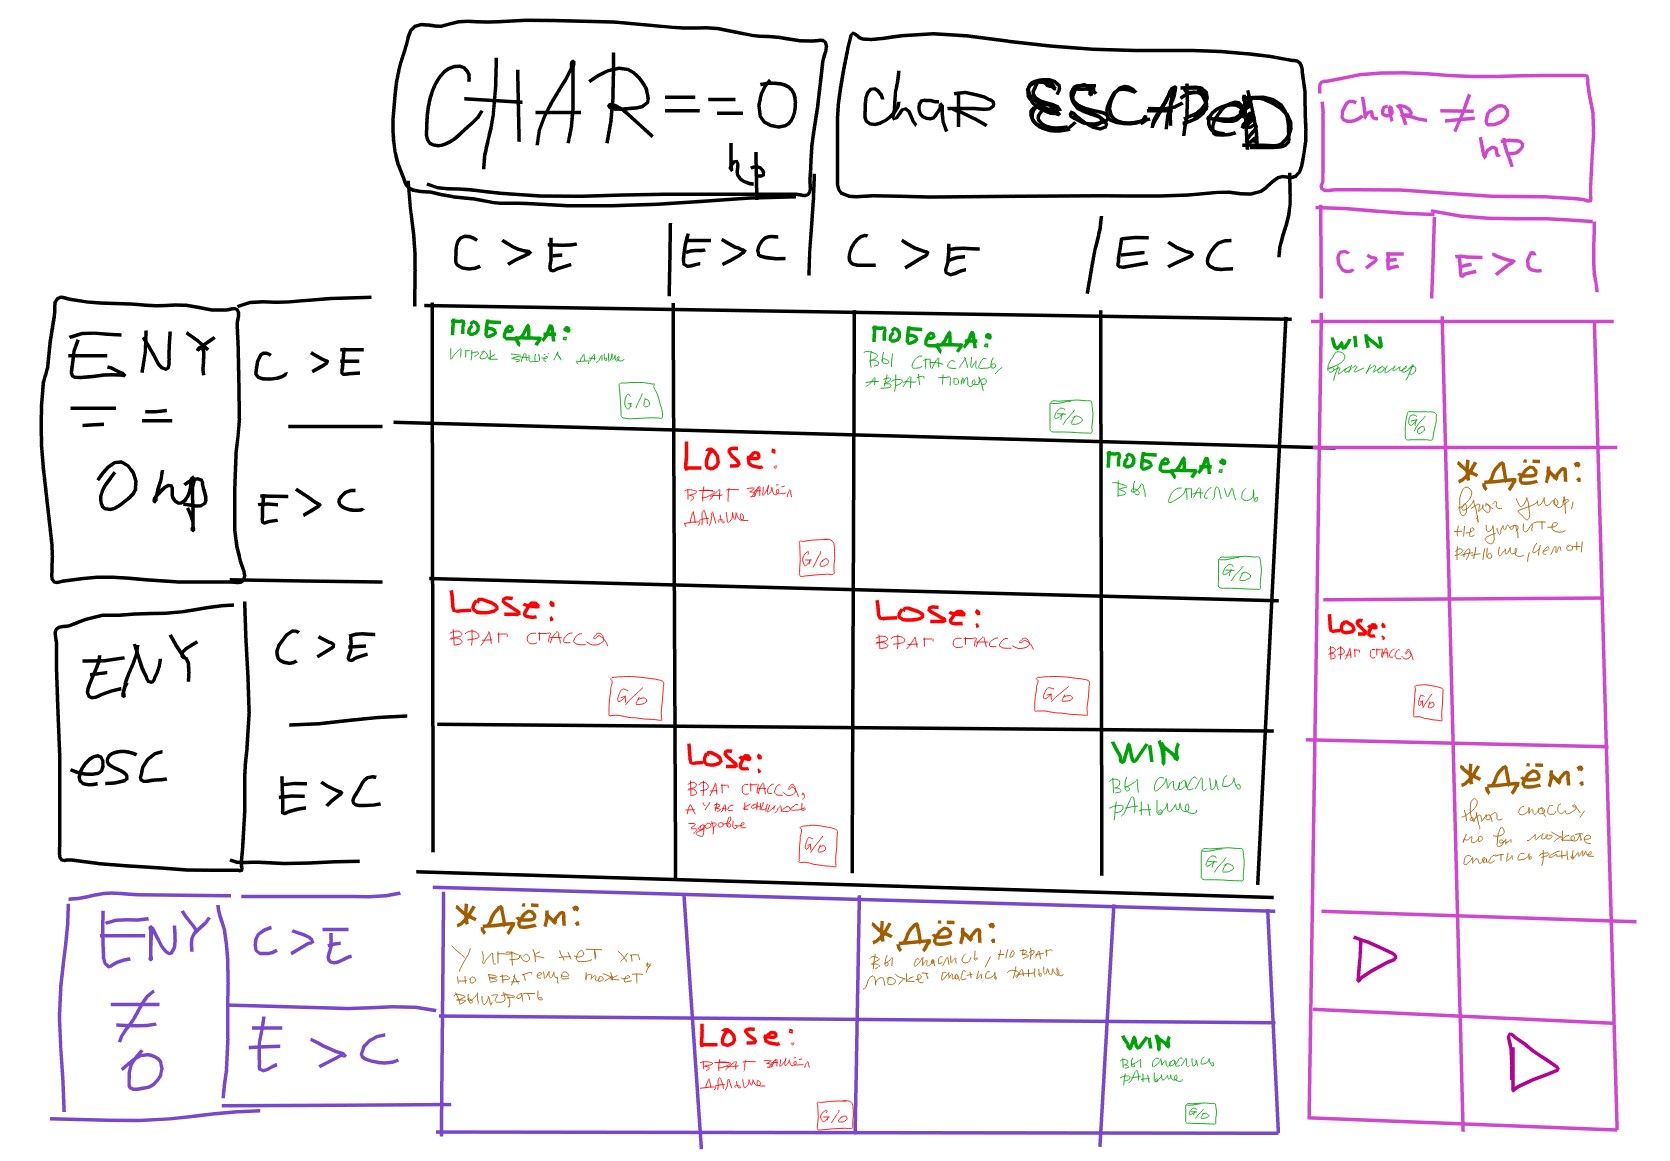 CHAR==0
hp
chaR ESCAPeD
ChaR ≠0
hp
C > E
E > C
C > E
E > C
C > E
E > C
ENY
==
0 hp
C > E
E > C
ПОБеДА:
ИГРОК ЗАШЁЛ ДАЛЬШЕ
G/O
ПОБеДА:
ВЫ СПАСЛИСЬ,
А ВРАГ ПОМЕР
G/O
WIN
Враг помер
G/O
LOSe:
ВРАГ ЗАШЁЛ
ДАЛЬШЕ
G/O
ПОБеДА:
ВЫ СПАСЛИСЬ
G/O
ЖДЁМ:
Враг умер,
не умрите
раньше, чем он
ENY
esc
C > E
E > C
LOSe:
ВРАГ СПАССЯ
G/O
LOSe:
ВРАГ СПАССЯ
G/O
LOSe:
ВРАГ СПАССЯ
G/O
LOSe:
ВРАГ СПАССЯ,
А У ВАС КОНЧИЛОСЬ
Здоровье
G/O
WIN
ВЫ спаслись
РАНьше
G/O
ЖДЁМ:
Враг спасся,
но вы можете
спастись раньше
ENY
≠
0
C > E
E > C
ЖДЁМ:
У ИГРОК НЕТ ХП,
НО ВРАГ ЕЩЕ МОЖЕТ
ВЫИГРАТЬ
ЖДЁМ:
ВЫ спаслись, НО ВРАГ
МОЖЕТ спастись раньше
LOSe:
ВРАГ ЗАШЁЛ
ДАЛЬШЕ
G/O
WIN
ВЫ спаслись
РАНьше
G/O